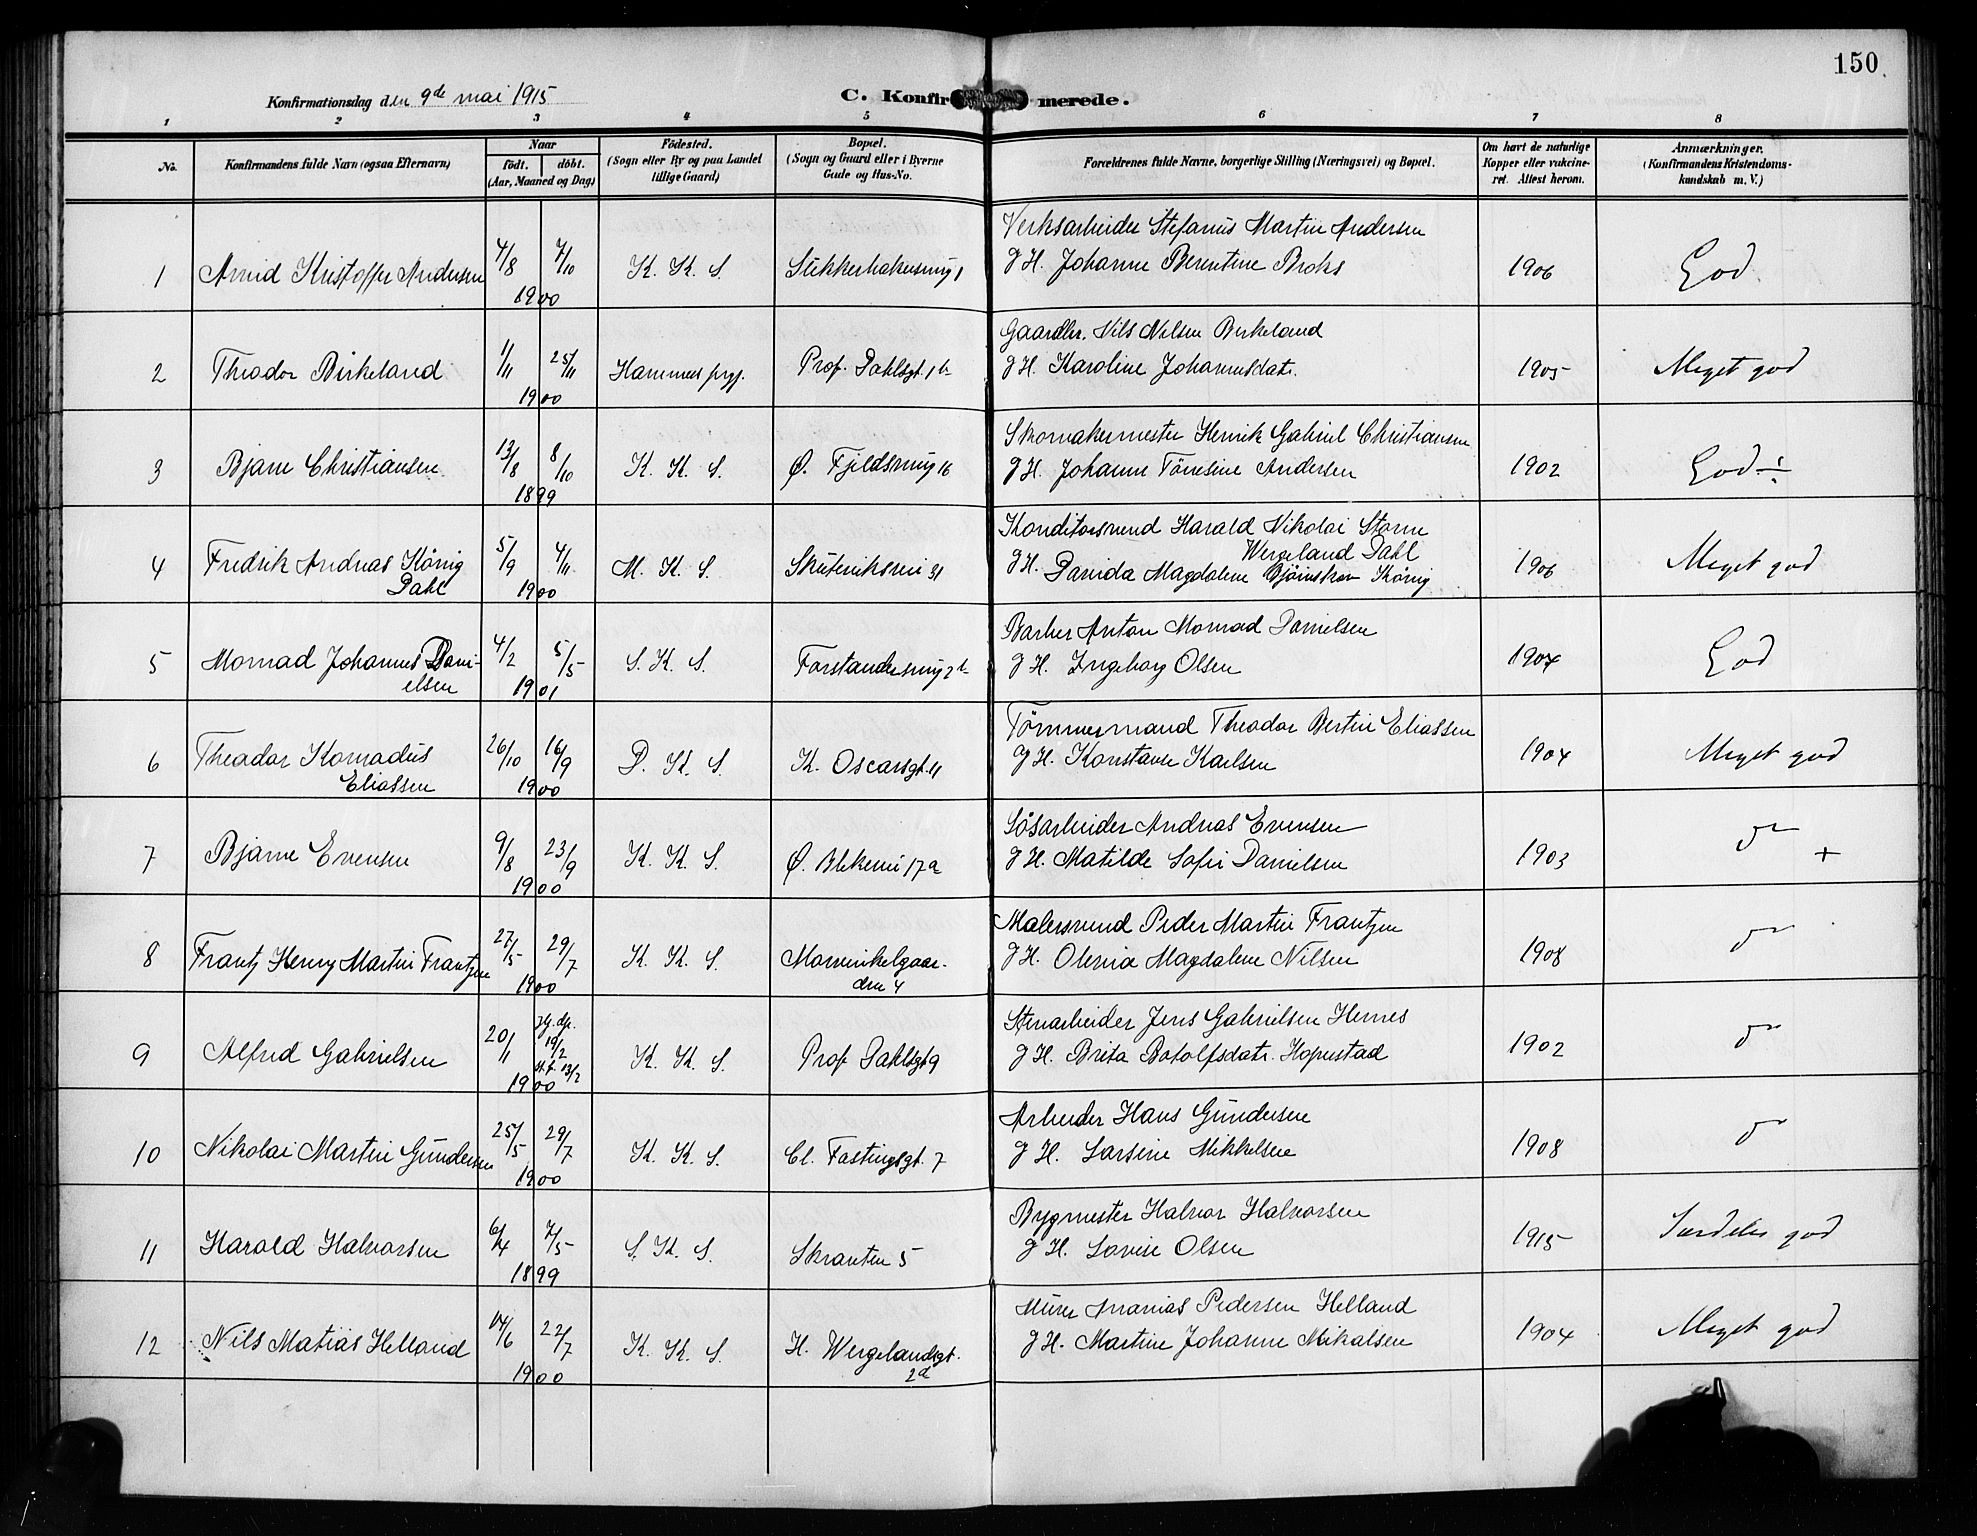 150
Konfirmationsdag den 9de mai 1915
C. Konfirmerede.
1 2 3 4 5 6 7 8
No.
Konfirmandens fulde Navn (ogsaa Efternavn)
Naar
födt. döbt.
(Aar, Maaned og Dag)
Födested.
(Sogn eller By og paa Landet
tillige Gaard)
Bopæl.
(Sogn og Gaard eller i Byerne
Gade og Hus-No.
Forældrenes fulde Navne, borgerlige Stilling (Næringsvei) og Bopæl.
Om havt de naturlige
Kopper eller vakcine-
ret. Attest herom.
Anmærkninger.
(Konfirmandens Kristendoms-
kundskab m. V.)
Verksarbeider Stefanus Martin Andersen
1 Arvid Kristoffer Andersen 4/8 7/10 K. K. S. Stikkerhakesmug 1 g H. Johanne Berentine Brohs 1906 God
1900
Gaardbr. Nils Nilsen Birkeland
2 Theodor Birkeland 1/11 25/11 Hammer prgj. Prof. Dahlsgt. 1b g H. Karoline Johannesdatr. 1905 Meget god
1900
Skomakermester Henrik Gabriel Christiansen
3 Bjarne Christiansen 13/8 8/10 K. K. S. Ø. Fjeldsmug 16 g H. Johanne Tönnesine Andersen 1902 God ÷
1899
Konditorsvend Harald Nikolai Storm
Wergeland Dahl
4 Fredrik Andreas König 5/9 4/11 M. K. S. Skuteviksvei 31 g H. Davida Magdalene König 1906 Meget god
Dahl 1900
Barber Anton Monrad Danielsen
5 Monrad Johannes Dani- 4/2 5/5 S. K. S. Forstandersmug 2b g H. Ingeborg Olsen 1904 God
elsen 1901
Tömmermand Theodor Bertin Eliassen
6 Theodor Konradus 26/10 16/9 D. K. S. K. Oscarsgt. 11 g H. Konstanse Karlsen 1904 Meget god
Eliassen 1900
Løsarbeider Andreas Evensen
7 Bjarne Evensen 9/8 23/9 K. K. S. Ø. Blekevei 17a g H. Matilde Sofie Danielsen 1903 do +
1900
Malersvend Peder Martin Frantzen
8 Frantz Henry Martin Frantzen 27/5 29/7 K. K. S. Monvinkelgaar- g H. Olevia Magdalene Nilsen 1908 do
1900 den 4
Stenarbeider Jens Gabrielsen Hernes
9 Alfred Gabrielsen 20/1 Hj. dp. 10/2 st. f. 13/2 K. K. S. Prof Dahlsgt 9 g H. Brita Botolfsdatr. Hopestad 1902 do
1900
Arbeider Hans Gundersen
10 Nikolai Martin Gundersen 25/5 29/7 K. K. S. Cl. Fastingsgt. 7 g H. Larsine Mikkelsen 1908 do
1900
Bygmester Halvor Halvorsen
11 Harald Halvorsen 6/4 7/5 S. K. S. Skranten 5 g H. Lovise Olsen 1915 Særdeles god
1899
Murer Ananias Pedersen Helland
12 Nils Matias Helland 14/6 22/7 K. K. S. H. Wergelandsgt. g H. Martine Johanne Mikalsen 1904 Meget god
1900 2d